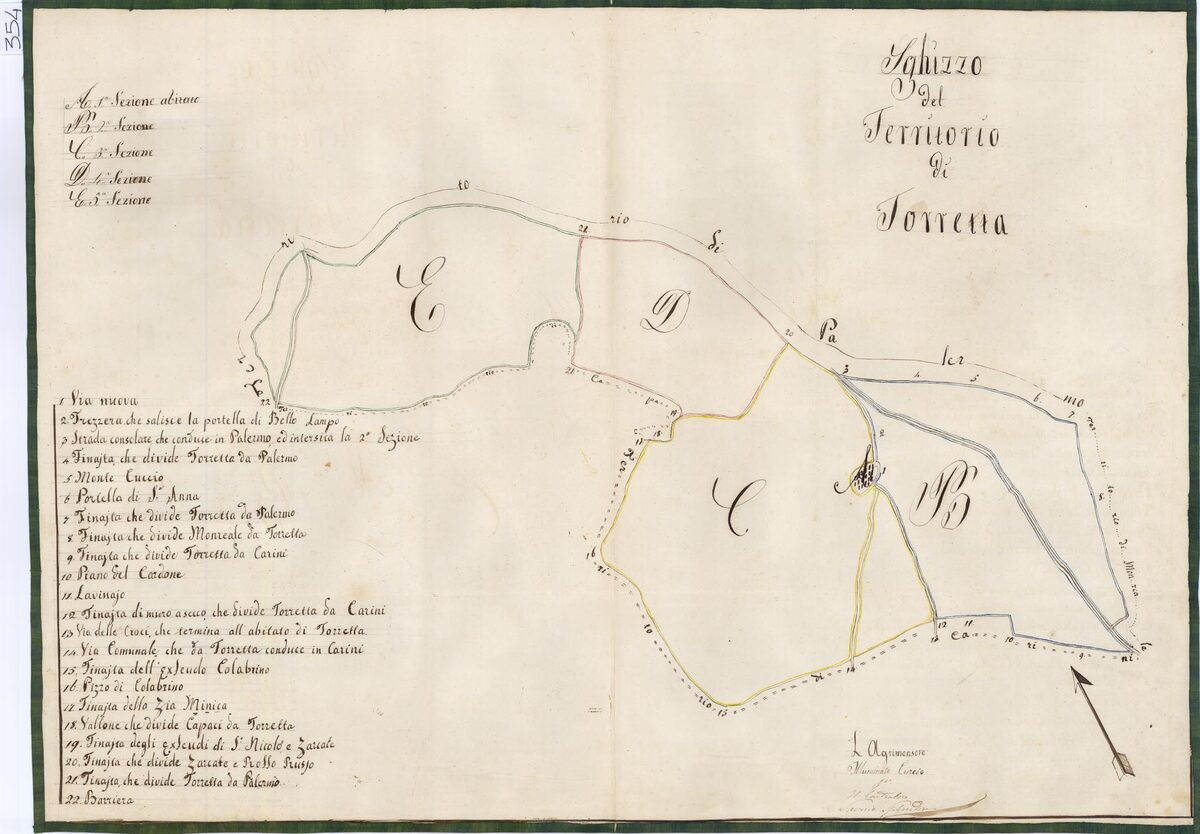 354
Sghizzo
del
Territorio
di
Torretta
A. 1ª Sezione abitato
B. 2ª Sezione
C. 3ª Sezione
D. 4ª Sezione
E. 5ª Sezione
Ter ri to rio di Pa ler mo
E
D
C
A
B
Ter ri to rio di Mon rea le
Ter ri to rio di Ca ri ni
Ca paci
1 Via nuova
2. Trezzera che salisce la portella di Bello Lampo
3 Strada consolare che conduce in Palermo, ed intersica la 2ª Sezione
4 Finajta, che divide Torretta da Palermo
5 Monte Cuccio
6 Portella di Sª Anna
7 Finajta che divide Torretta da Palermo
8 Finajta che divide Monreale da Torretta
9. Finajta che divide Torretta da Carini
10 Piano del Cardone
11. Lavinajo
12 Finajta di muro a secco, che divide Torretta da Carini
13 Via delle Croci, che termina all abitato di Torretta
14. Via Comunale, che da Torretta conduce in Carini
15. Finajta dell' exfeudo Colabrino
16. Pizzo di Colabrino
17 Finajta dello Zia Minica
18. Vallone che divide Capaci da Torretta
19. Finajta degli exfeudi di Sⁿ Nicolò e Zarcate
20. Finajta che divide Zarcate e Rosso Russo
21. Finajta, che divide Torretta da Palermo
22. Barriera
L Agrimensore
Illuminato Curcio